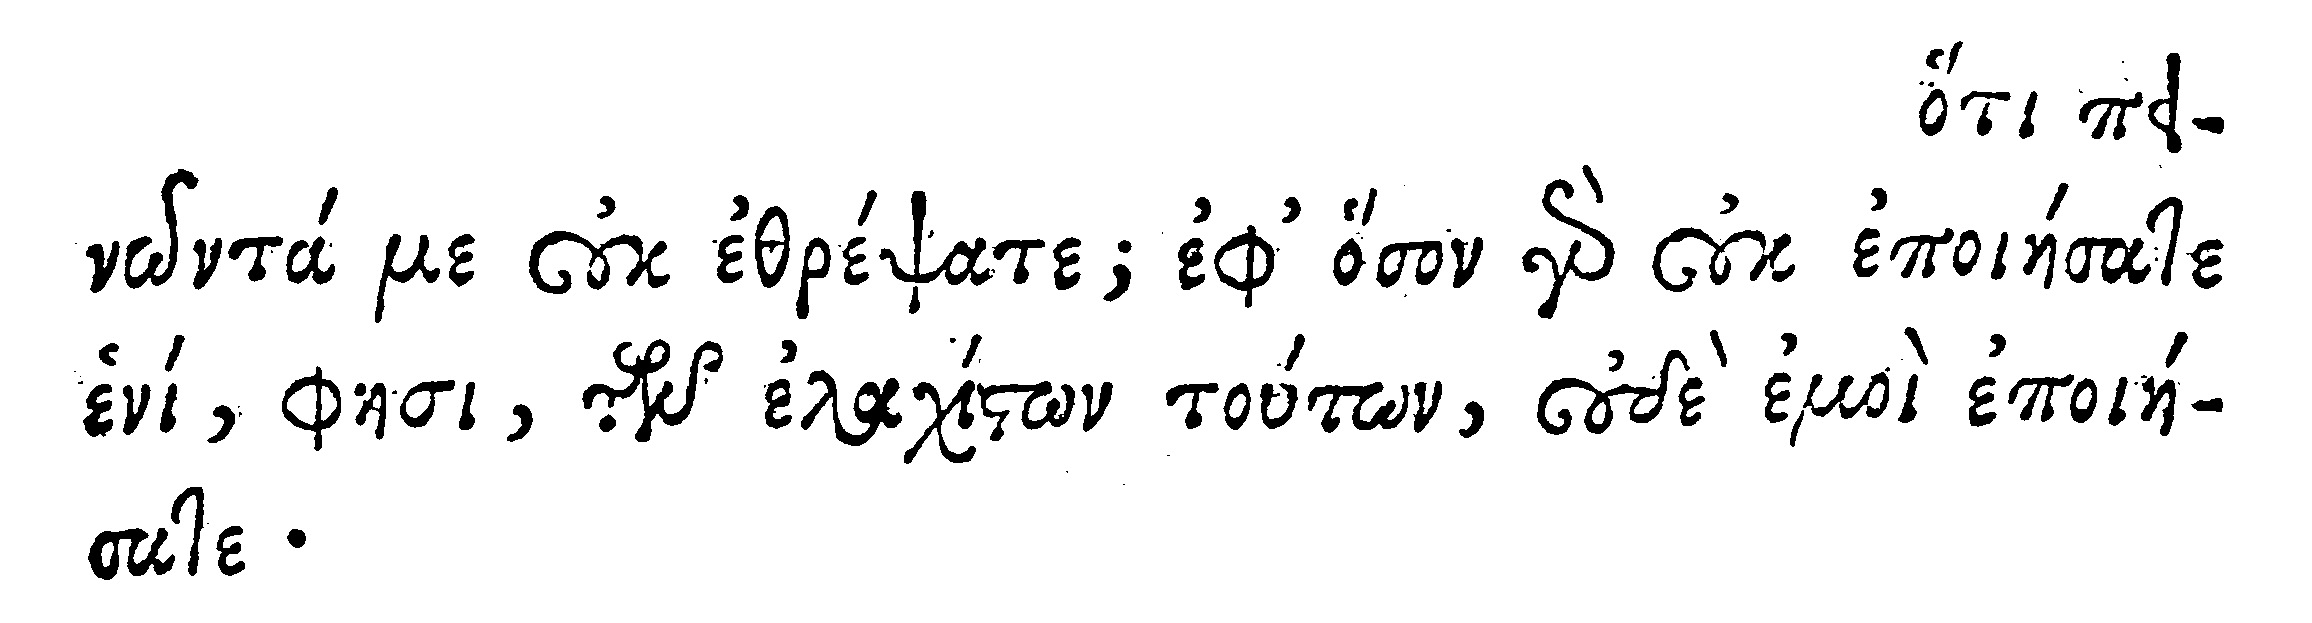 ὅτι πει-
νῶντά με οὐκ ἐθρέψατε; ἐφ᾽ ὅσον γὰρ οὐκ ἐποιήσατε
ἑνί, φησι, τῶν ἐλαχίϛων τούτων, οὐδὲ ἐμοὶ ἐποιή-
σατε ·